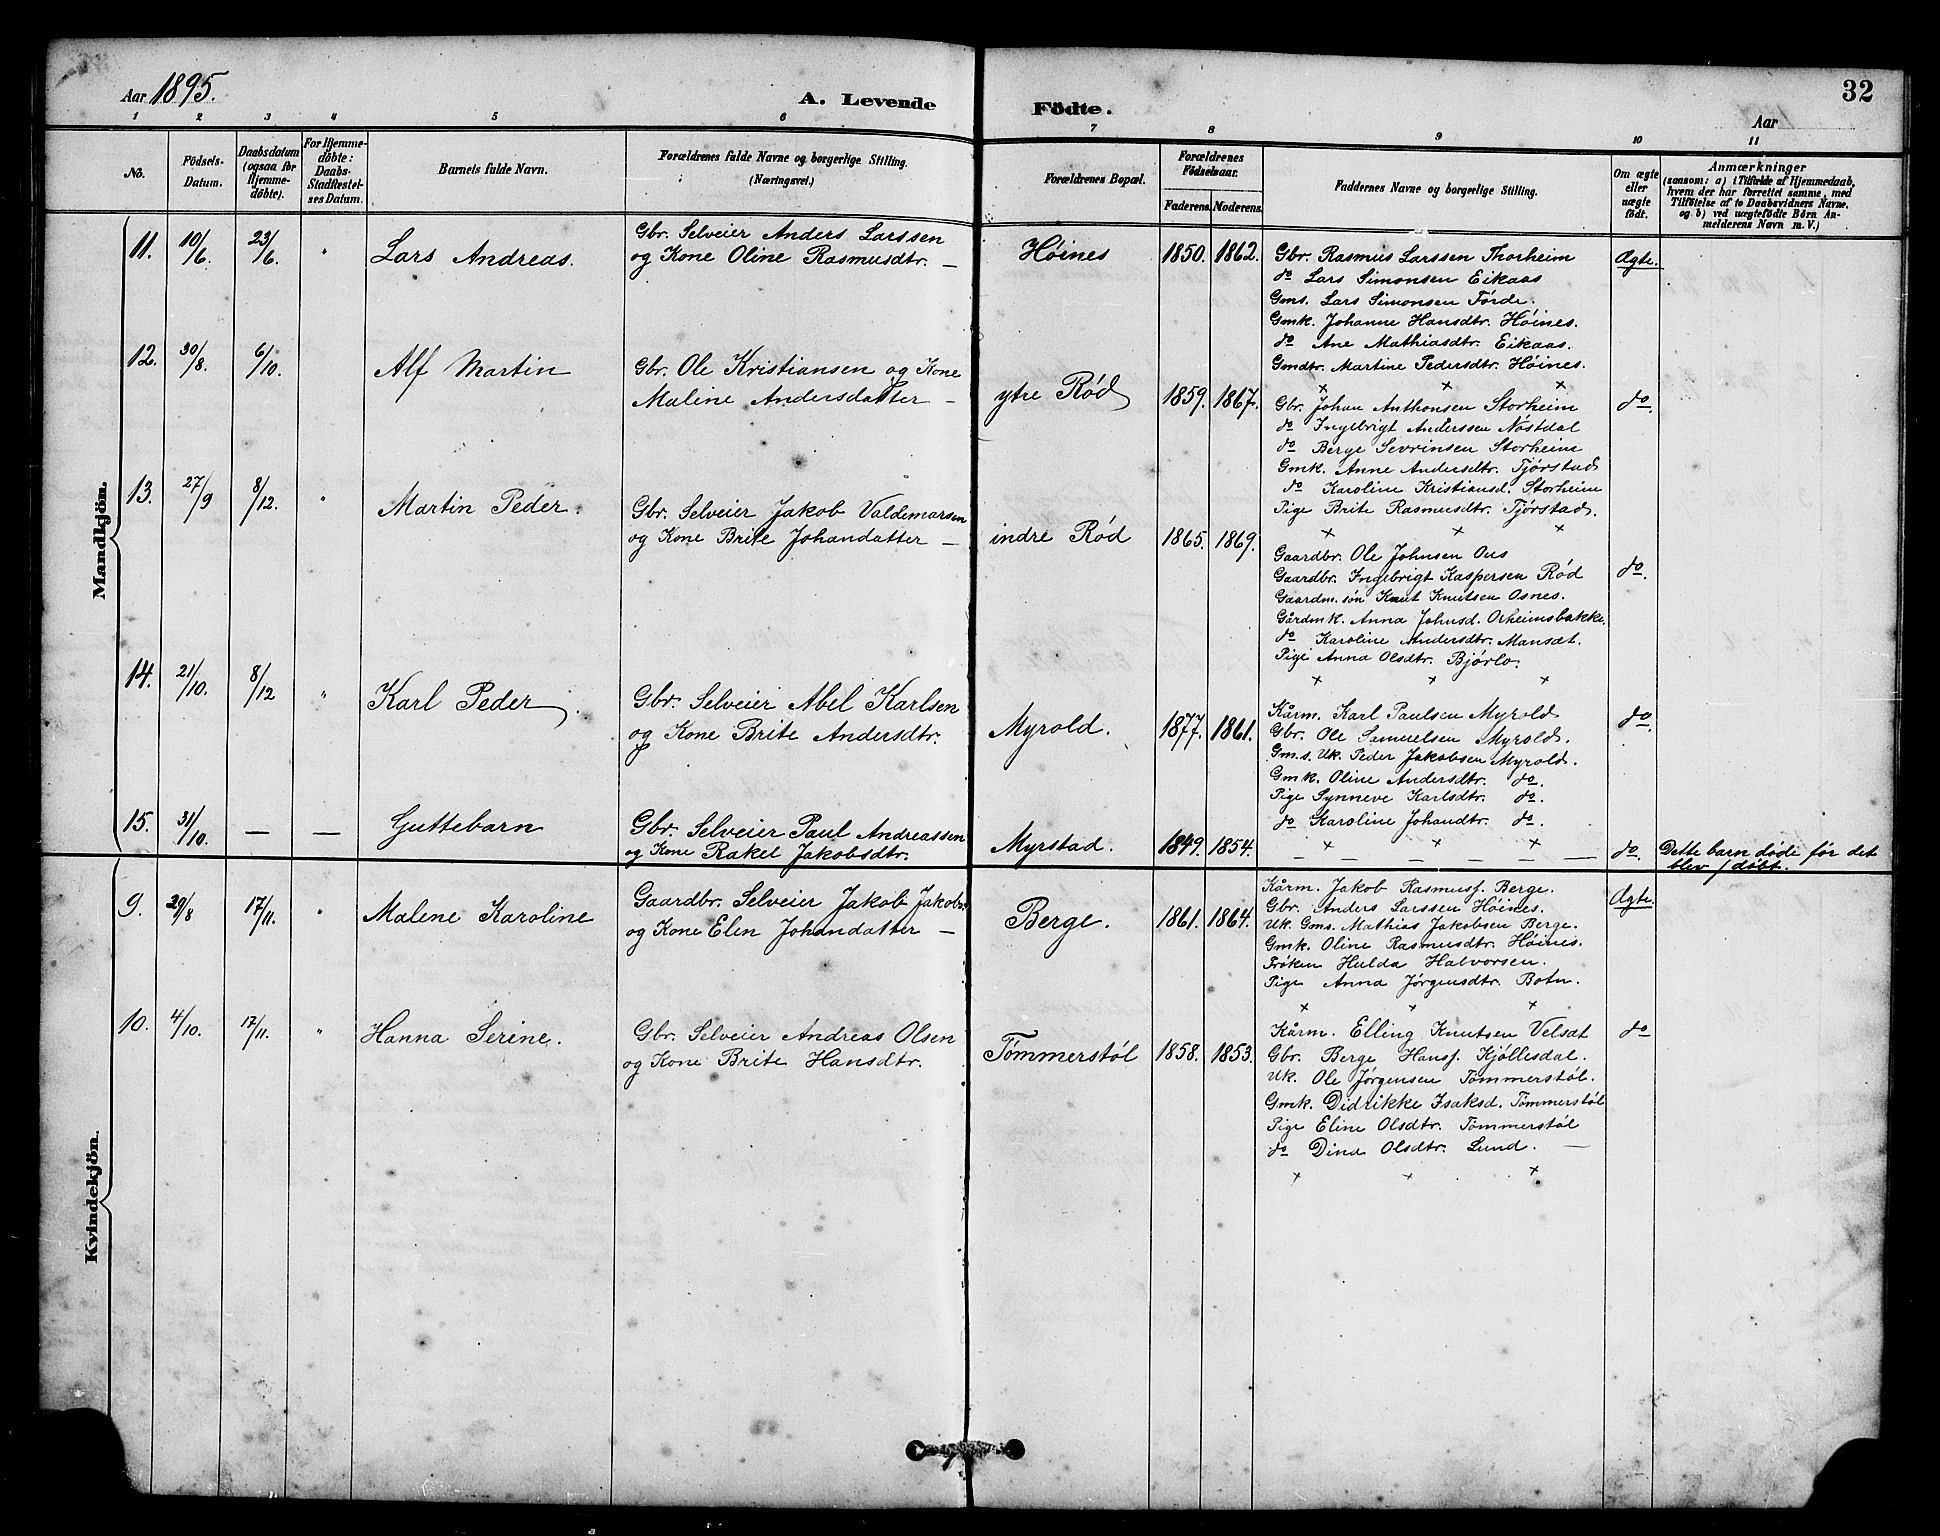 Aar 1895.
A. Levende Födte.
32
Aar
1 2 3 4 5 6 7 8 9 10 11
No.
Födsels-Datum.
Daabsdatum (ogsaa for Hjemme-döbte).
For Hjemme-döbte: Daabs-Stadfæstel-ses Datum.
Barnets fulde Navn.
Forældrenes fulde Navne og borgerlige Stilling. (Næringsvei.)
Forældrenes Bopæl.
Forældrenes Födselsaar.
Faderens. Moderens.
Faddernes Navne og borgerlige Stilling.
Om ægte eller uægte födt.
Anmærkninger
(saasom: a) i Tilfælde af Hjemmedaab,
hvem der har forrettet samme, med
Tilföielse af to Daabsvidners Navne.
og b) ved uægtefödte Börn An-
melderens Navn m. V.)
Mandkjön.
11. 10/6. 23/6. " Lars Andreas.
Gbr. Selveier Anders Larssen
og Kone Oline Rasmusdtr. —
Høines 1850. 1862.
Gbr. Rasmus Larssen Thorheim
do Lars Simonsen Eikaas
Gms. Lars Simonsen Førde.
Gmk. Johanne Hansdtr. Høines.
do Ane Mathiasdtr. Eikaas.
Gmdtr. Martine Pedersdtr. Høines.
x x x
Ægte.
12. 30/8. 6/10. Alf Martin
Gbr. Ole Kristiansen og Kone
Maline Andersdatter —
ytre Rød 1859. 1867.
Gbr. Johan Anthonsen Storheim
do Ingebrigt Anderssen Nøstdal
do Berge Sevrinsen Storheim
Gmk. Anne Andersdtr. Tjørstad
do Karoline Kristiansd. Storheim
Pige Brite Rasmusdtr. Tjørstad.
x x x
do.
13. 27/9 8/12. " Martin Peder.
Gbr. Selveier Jakob Valdemarsen
og Kone Brite Johandatter —
indre Rød 1865. 1869.
Gaardbr. Ole Johnsen Ous
Gaardbr. Ingebrigt Kaspersen Rød
Gaardm. søn Knut Knutsen Osnes.
Gårdmk. Anna Johnsd. Orheimsbakke.
do Karoline Andersdtr. Mansæt.
Pige Anna Olsdtr. Bjørlo.
x x x
do.
14. 21/10. 8/12 " Karl Peder
Gbr. Selveier Abel Karlsen
og Kone Brite Andersdtr.
Myrold. 1877. 1861.
Kårm. Karl Paulsen Myrold
Gbr. Ole Samuelsen Myrold.
Gm.s. Uk. Peder Jakobsen Myrold.
Gmk. Oline Andersdtr. do.
Pige Synneve Karlsdtr. do.
do Karoline Johandtr. do.
x x x
do
15. 31/10. — — Guttebarn
Gbr. Selveier Paul Andreassen
og Kone Rakel Jakobsdtr.
Myrstad. 1849. 1854.
— — — — — — —
do.
Dette barn døde før det
blev / døbt.
Kvindekjön.
9. 29/8 17/11. " Malene Karoline
Gaardbr. Selveier Jakob Jakobs.
og Kone Elen Johandatter —
Berge. 1861. 1864.
Kårm. Jakob Rasmusf. Berge.
Gbr. Anders Larssen Høines.
Uk. Gms. Mathias Jakobsen Berge.
Gmk. Oline Rasmusdtr. Høines.
Frøken Hulda Halvorsen.
Pige Anna Jørgensdtr. Botn.
x x x
Ægte.
10. 4/10. 17/11. " Hanna Serine.
Gbr. Selveier Andreas Olsen
og Kone Brite Hansdtr.
Tømmerstøl 1858. 1853.
Kårm. Elling Knutsen Velsæt
Gbr. Berge Hansf. Kjøllesdal.
Uk. Ole Jørgensen Tømmerstøl.
Gmk. Didrikke Isaksd. Tømmerstøl
Pige Eline Olsdtr. Tømmerstøl
do Dina Olsdtr. Lund. —
x x x
do